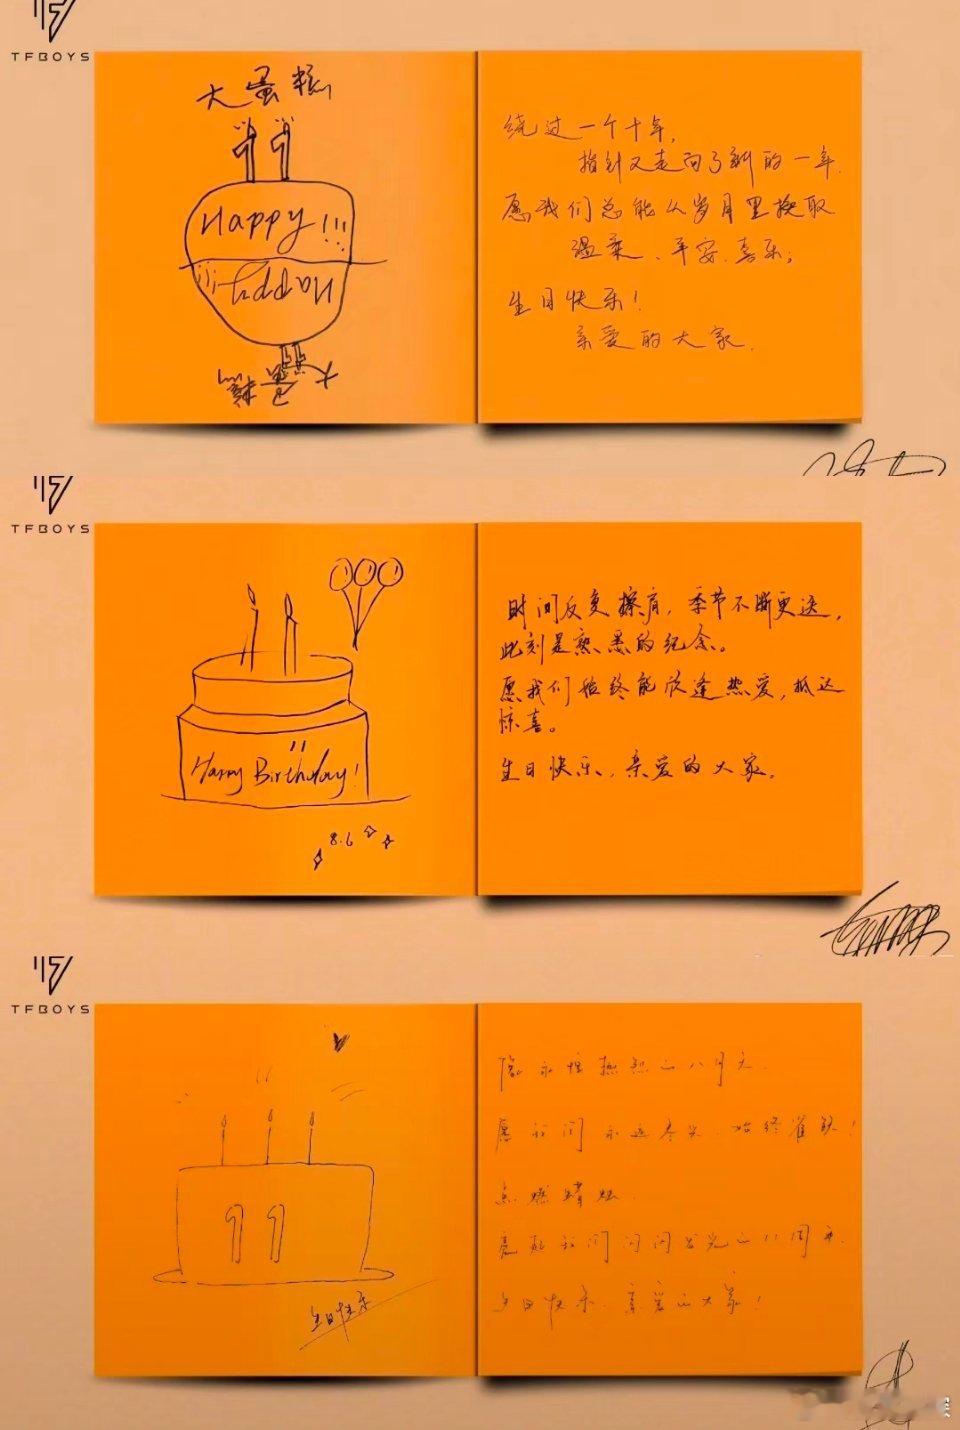 TFBOYS
大蛋糕
11
Happy!!!
Happy!!!
大蛋糕
绕过一个十年,
指针又走向了新的一年.
愿我们总能从岁月里换取
温柔、平安、喜乐;
生日快乐!
亲爱的大家.
TFBOYS
Happy Birthday!
8.6
时间反复擦肩，季节不断更迭，
此刻是熟悉的纪念。
愿我们始终能欣逢热爱，抵达
惊喜。
生日快乐，亲爱的大家。
TFBOYS
11
生日快乐
像永恒热烈的八月天.
愿我们永远尽兴.始终雀跃!
点燃蜡烛.
亮起我们闪闪发光的11周年.
生日快乐.亲爱的大家!